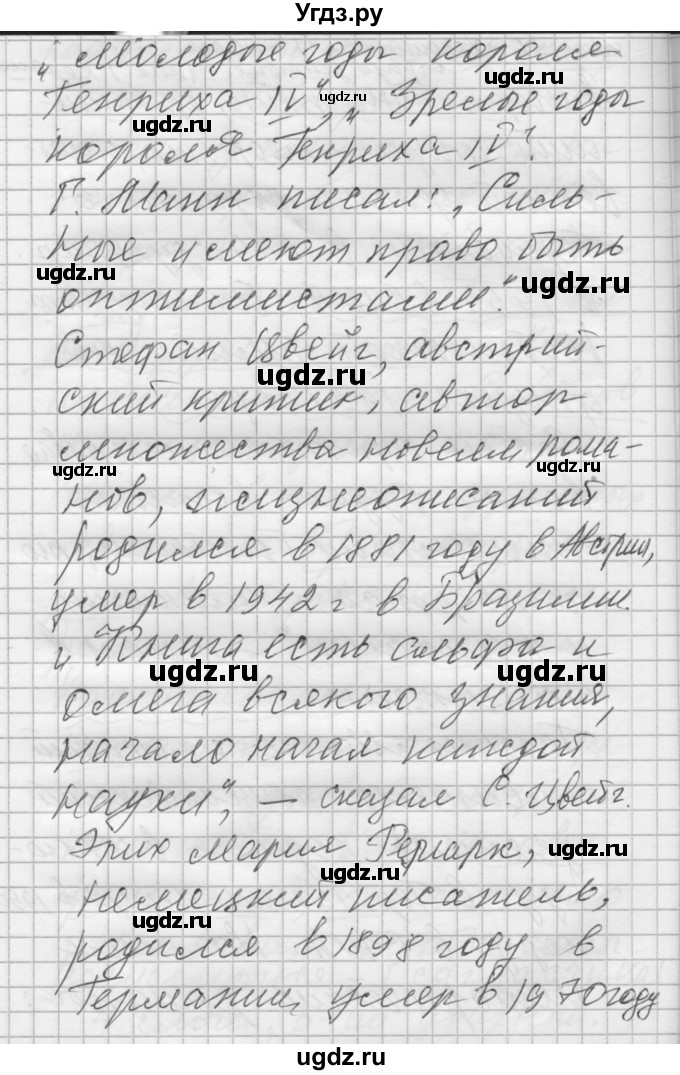 Угдз.ру
„Молодые годы короля
Генриха IV“, „Зрелые годы
ugdz.ru ugdz.ru
короля Генриха IV“.
Г. Манн писал: „Силь-
ные имеют право быть
ugdz.ru ugdz.ru
оптимистами“.
Стефан Цвейг, австрий-
ugdz.ru
ский критик, автор
множества новелл, рома-
ugdz.ru ugdz.ru
нов, жизнеописаний
родился в 1881 году в Австрии,
умер в 1942 г в Бразилии.
„Книга есть альфа и
ugdz.ru ugdz.ru
омега всякого знания,
начало начал каждой
науки“, — сказал С. Цвейг.
Эрих Мария Ремарк, ugdz.ru
ugdz.ru
немецкий писатель,
ugdz.ru
родился в 1898 году в
Германии, умер в 1970 году
ugdz.ru